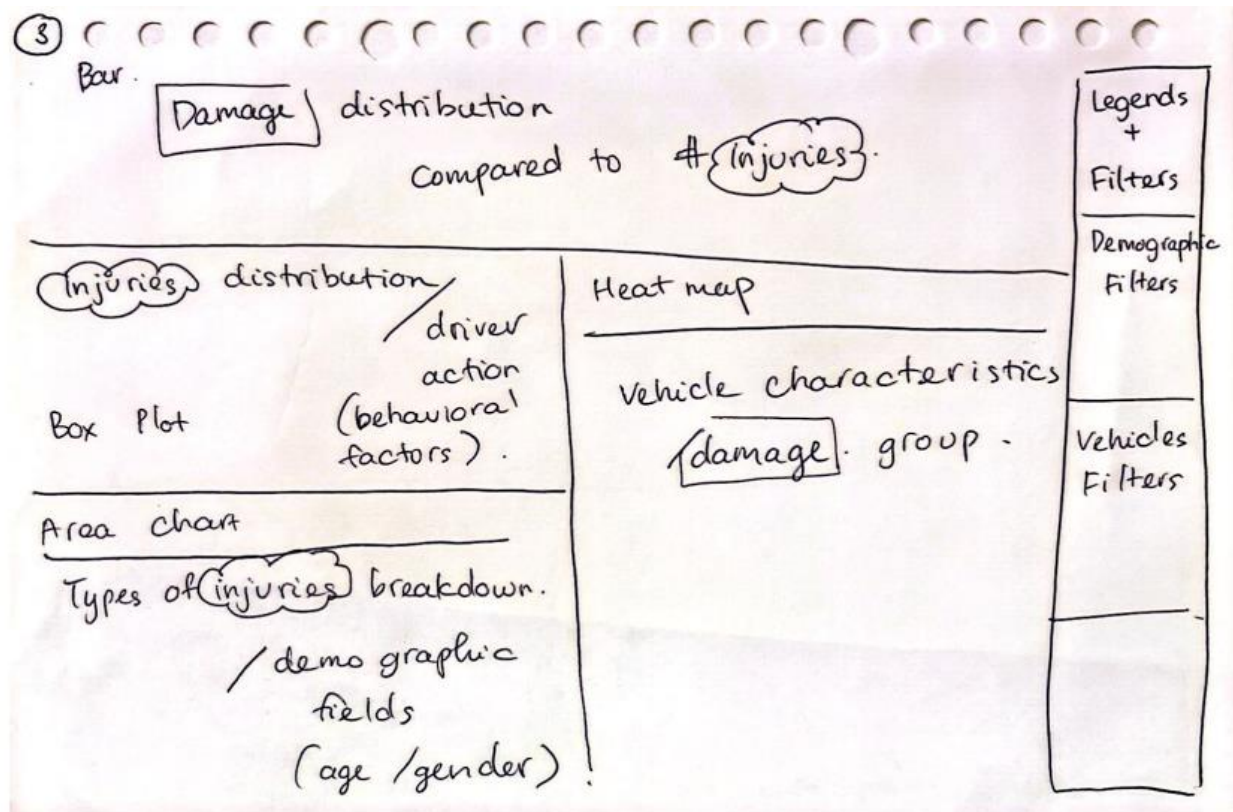 3
Bar.
Damage distribution
compared to # injuries.
Injuries distribution
/ driver
action
Box Plot (behavioral
factors).
Area chart
Types of injuries breakdown.
/ demographic
fields
(age / gender)
Heat map
Vehicle characteristics
/ damage. group.
Legends
+
Filters
Demographic
Filters
Vehicles
Filters